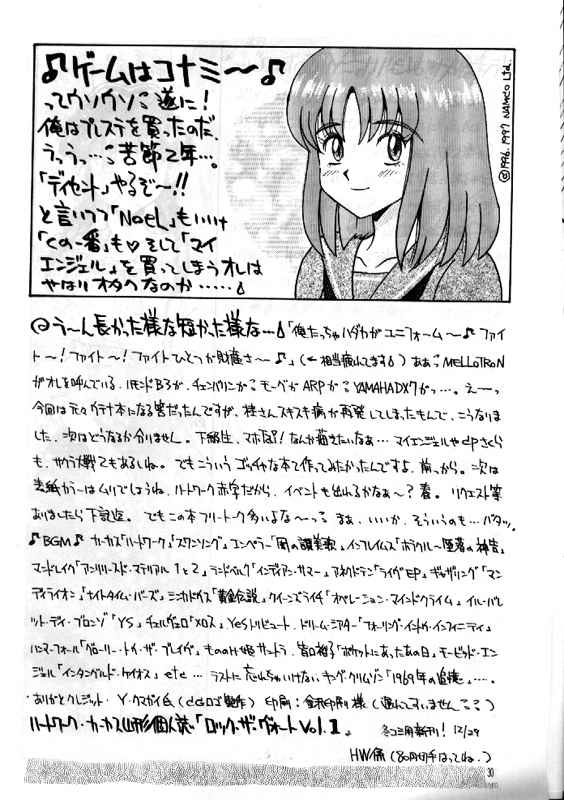 ♪ゲームはコナミ〜♪
ってウソウソ 遂に!
俺はプレステを買ったのだ.
うっうっ… 苦節2年…。
「ディセント」やるぞ〜!!
と言いつつ「NOëL」もいいけ
「くの一番」も♡そして「マイ
エンジェル」を買ってしまうオレは
やはりオタクなのか……
©1996, 1997 NAMCO Ltd.
う〜ん長かった様な短かった様な…「俺たっちゃハダカがユニフォーム〜♪ファイ
ト〜!ファイト〜!ファイトひとつが財産さ〜♪」(←相当疲れてます) ああ MELLOTRON
がオレを呼んでいる.ハモンドB3が.チェンバリンが モーグが ARPが YAMAHA DX7がっ…。えーっ
今回は元々グチナ本になる筈だったんですが、桂さんスキスキ病が再発してしまったもんで、こうなりま
した.次はどうなるか分りません。下級生、マホ 
なんか描きたいなぁ…マイエンジェルや さくら
も、サクラ大戦てもあるしね。でもこういうゴッチャな本て作ってみたかったんですよ.前っから。次は
表紙カラーはムリでしょうね.ハートワーク赤字だから.イベントも出れるかなぁ〜?春。リクエスト等
ありましたら下記迄。でもこの本フリートーク多いよな〜っ まぁ、いいか.そういうのも…バタッ.
♪BGM♪カーカス「ハートワーク」「スワンソング」エンペラー「闇の讃美歌」インフレイムス「
マンドレイク「アンリリースド・マテリアル1と2」ランドベルク「インディアン・サマー」アネクドテン「ライヴEP」ギャザリング「マン
ディライオン」「ナイトタイム・バーズ」ミンカドゥス「黄金伝説」クイーンズライチ「オペレーション・マインドクライム」イル・バレ
ット・ディ・ブロンゾ「YS」チェルヴェロ「メロス」YESトリビュート.ドリーム・シアター「フォーリング・イントゥ・インフィニティ」
ハンマーフォール「グローリー・トゥ・ザ・ブレイヴ」もののけ姫サントラ.谷口裕子「ポケットにあったあの日」モービッド・エン
ジェル「インタングルド・ケイオス」etc… ラストに忘れちゃいけないキング・クリムゾン「1969年の追憶」…..
ありがとクレジット.Y・クマガイ氏( ロゴ製作) 印刷:金沢印刷様(遅れてすいません)
ハートワーク・カーカス山形個人誌「ロック・ザ・ヴォート Vol.1」 冬コミ用新刊! 12/29
HW係(80円切手はってね.)
30